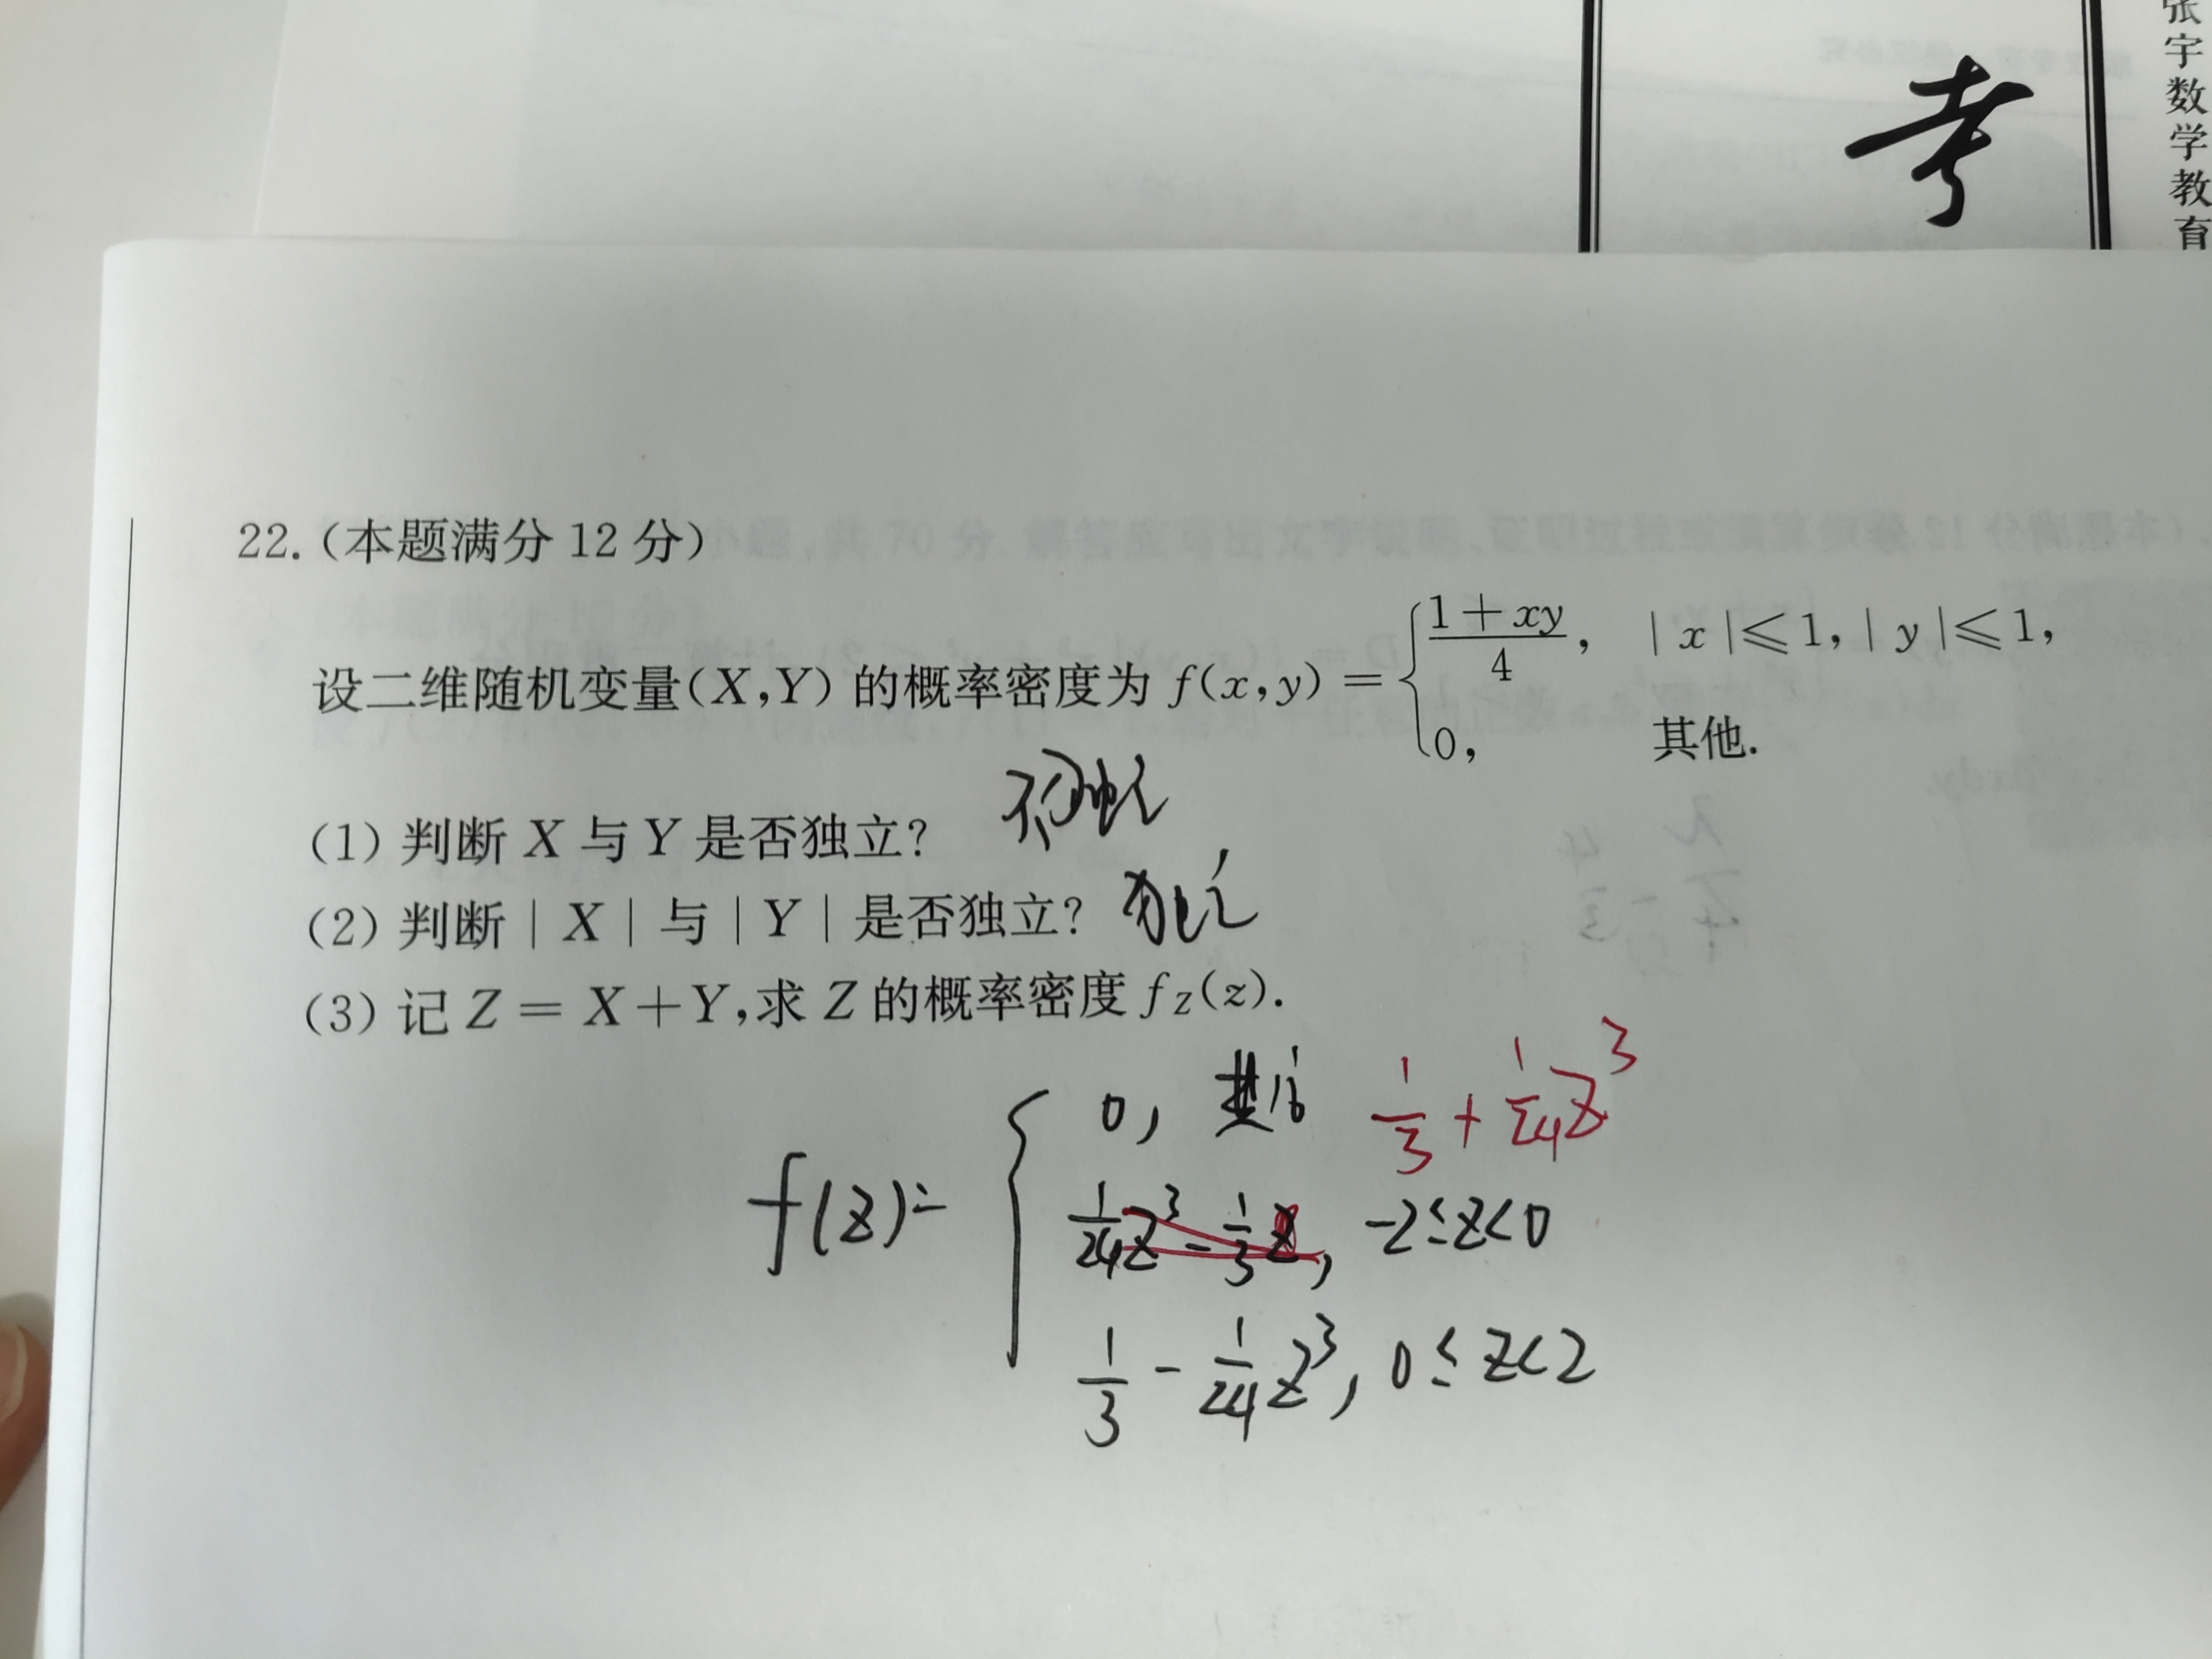 考
张宇数学教育
22.(本题满分12分)
设二维随机变量(X,Y)的概率密度为 f(x,y) = { (1+xy)/4, |x|≤1,|y|≤1,
0, 其他.
不独立
(1) 判断 X 与 Y 是否独立?
(2) 判断 |X| 与 |Y| 是否独立? 独立
(3) 记 Z = X+Y,求 Z 的概率密度 f_Z(z).
f(z)= { 0, 其他 1/3 + 1/24 z^3
1/24 z^3 - 1/3 z, -2≤z<0
1/3 - 1/24 z^3, 0≤z<2